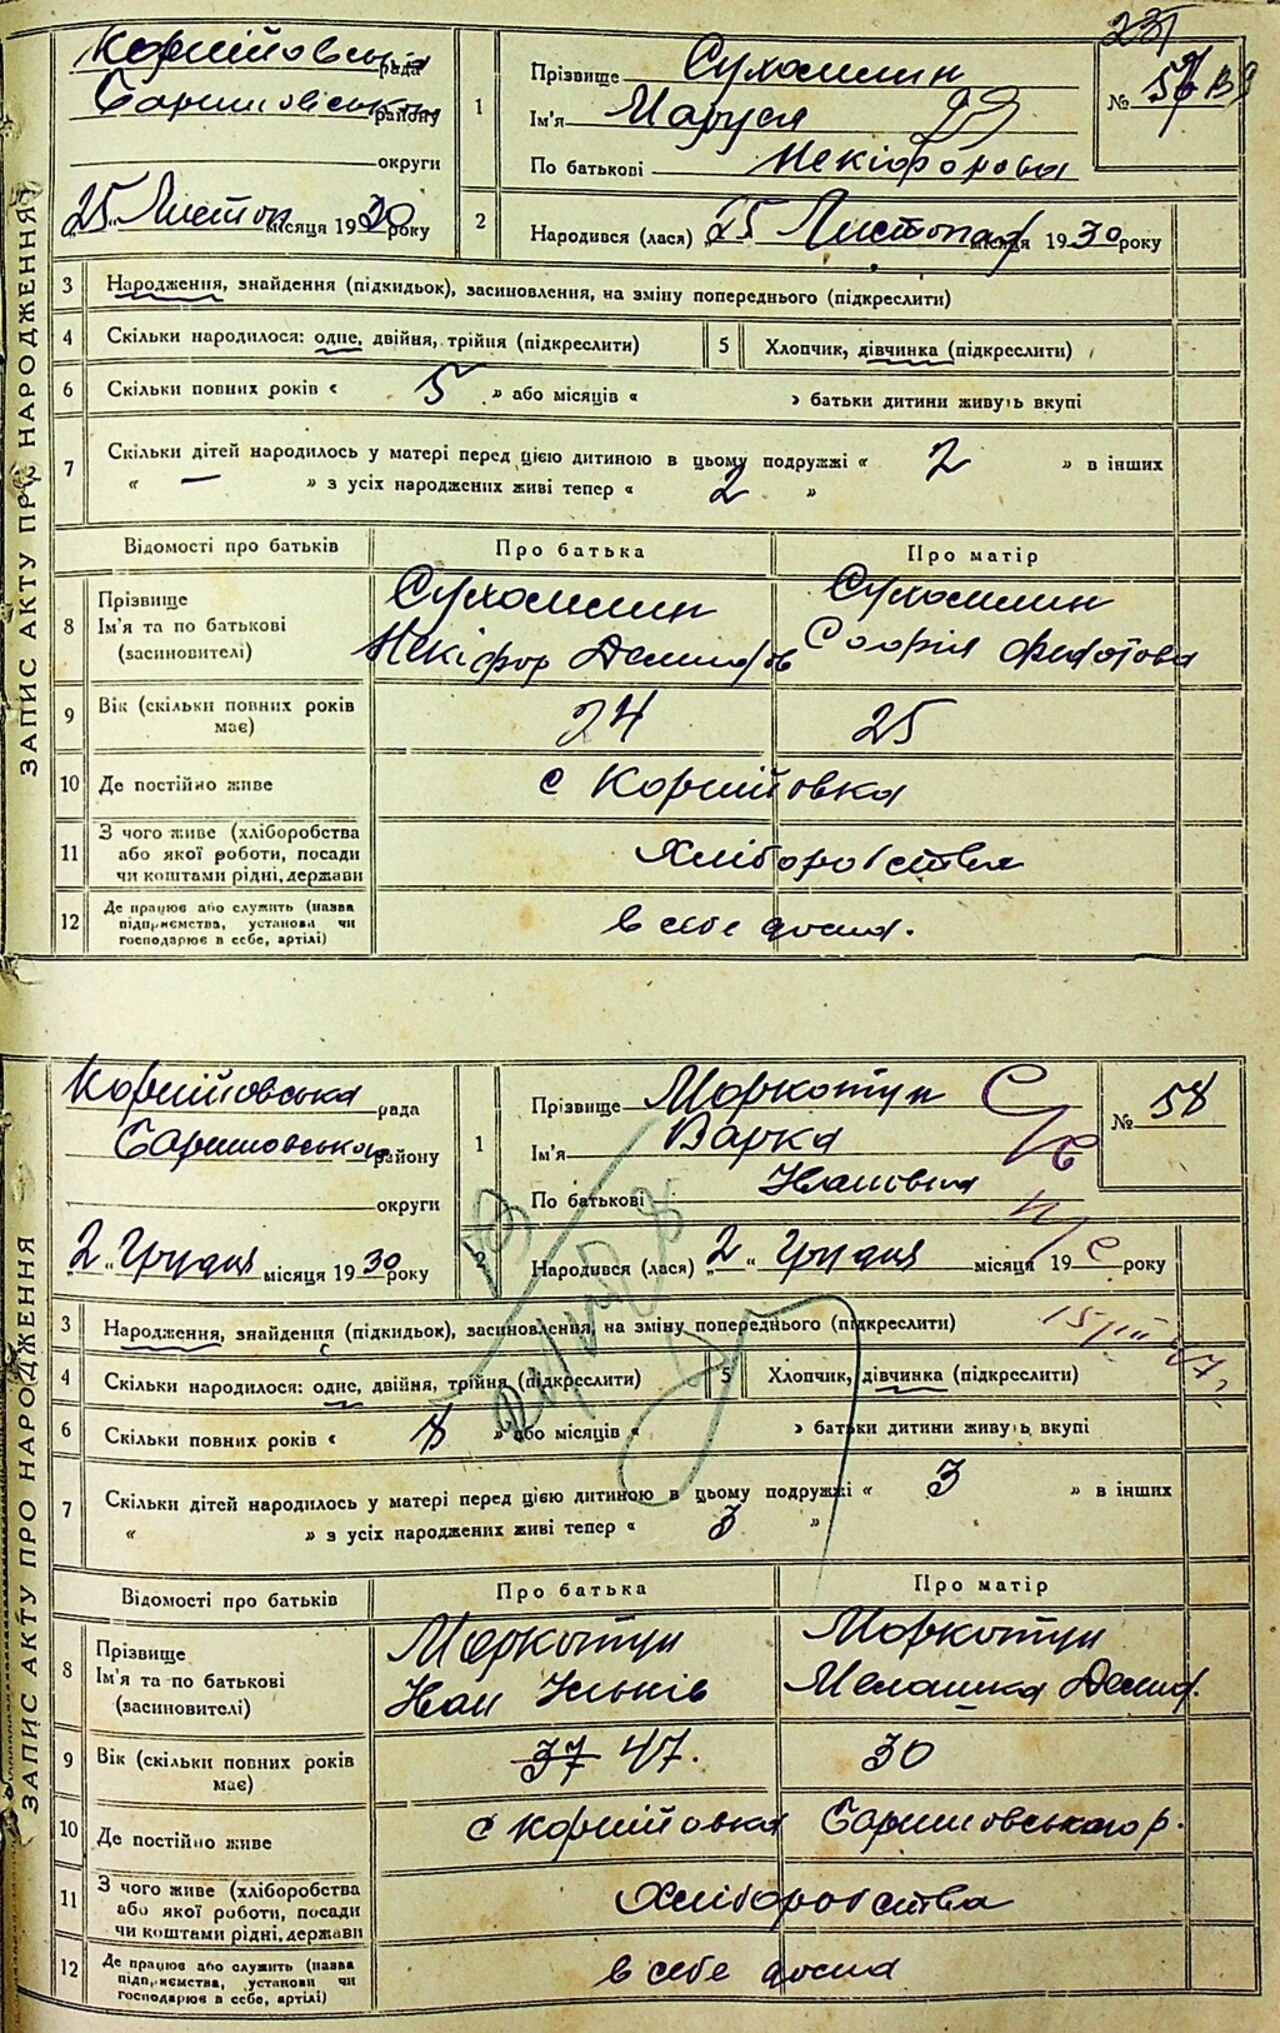 ЗАПИС АКТУ ПРО НАРОДЖЕННЯ
Корнійовська рада
Баришовського району
округи
"25" Листоп місяця 1930 року
1
Прізвище Сухомлин
Ім'я Маруся
По батькові Некіфорова
231
№ 57
2
Народився (лася) "25 Листопад місяця 1930 року
3 Народження, знайдення (підкидьок), засиновлення, на зміну попереднього (підкреслити)
4 Скільки народилося: одне, двійня, трійня (підкреслити) 5 Хлопчик, дівчинка (підкреслити)
6 Скільки повних років « 5 » або місяців « » батьки дитини живуть вкупі
7 Скільки дітей народилось у матері перед цією дитиною в цьому подружжі « 2 » в інших
« — » з усіх народжених живі тепер « 2 »
Відомості про батьків Про батька Про матір
8 Прізвище
Ім'я та по батькові
(засиновителі)
Сухомлин
Некіфор Демидов
Сухомлин
Софія Федотова
9 Вік (скільки повних років має) 24 25
10 Де постійно живе с Корнійовка
11 З чого живе (хліборобства
або якої роботи, посади
чи коштами рідні, держави
Хліборобства
12 Де працює або служить (назва
підприємства, установи чи
господарює в себе, артілі)
в себе дома.
ЗАПИС АКТУ ПРО НАРОДЖЕННЯ
Корнійовська рада
Баришовського району
округи
"2" Грудня місяця 1930 року
1
Прізвище Моркотун
Ім'я Варка
По батькові Івановна
№ 58
2
Народився (лася) "2" Грудня місяця 19 року
3 Народження, знайдення (підкидьок), засиновлення, на зміну попереднього (підкреслити)
4 Скільки народилося: одне, двійня, трійня (підкреслити) 5 Хлопчик, дівчинка (підкреслити)
6 Скільки повних років « 8 » або місяців « » батьки дитини живуть вкупі
7 Скільки дітей народилось у матері перед цією дитиною в цьому подружжі « 3 » в інших
« » з усіх народжених живі тепер « 3 »
Відомості про батьків Про батька Про матір
8 Прізвище
Ім'я та по батькові
(засиновителі)
Моркотун
Іван Ільків
Моркотун
Мелашка Демид.
9 Вік (скільки повних років має) 37 47. 30
10 Де постійно живе с Корнійовка Баришовського р.
11 З чого живе (хліборобства
або якої роботи, посади
чи коштами рідні, держави
Хліборобства
12 Де працює або служить (назва
підприємства, установи чи
господарює в себе, артілі)
в себе дома